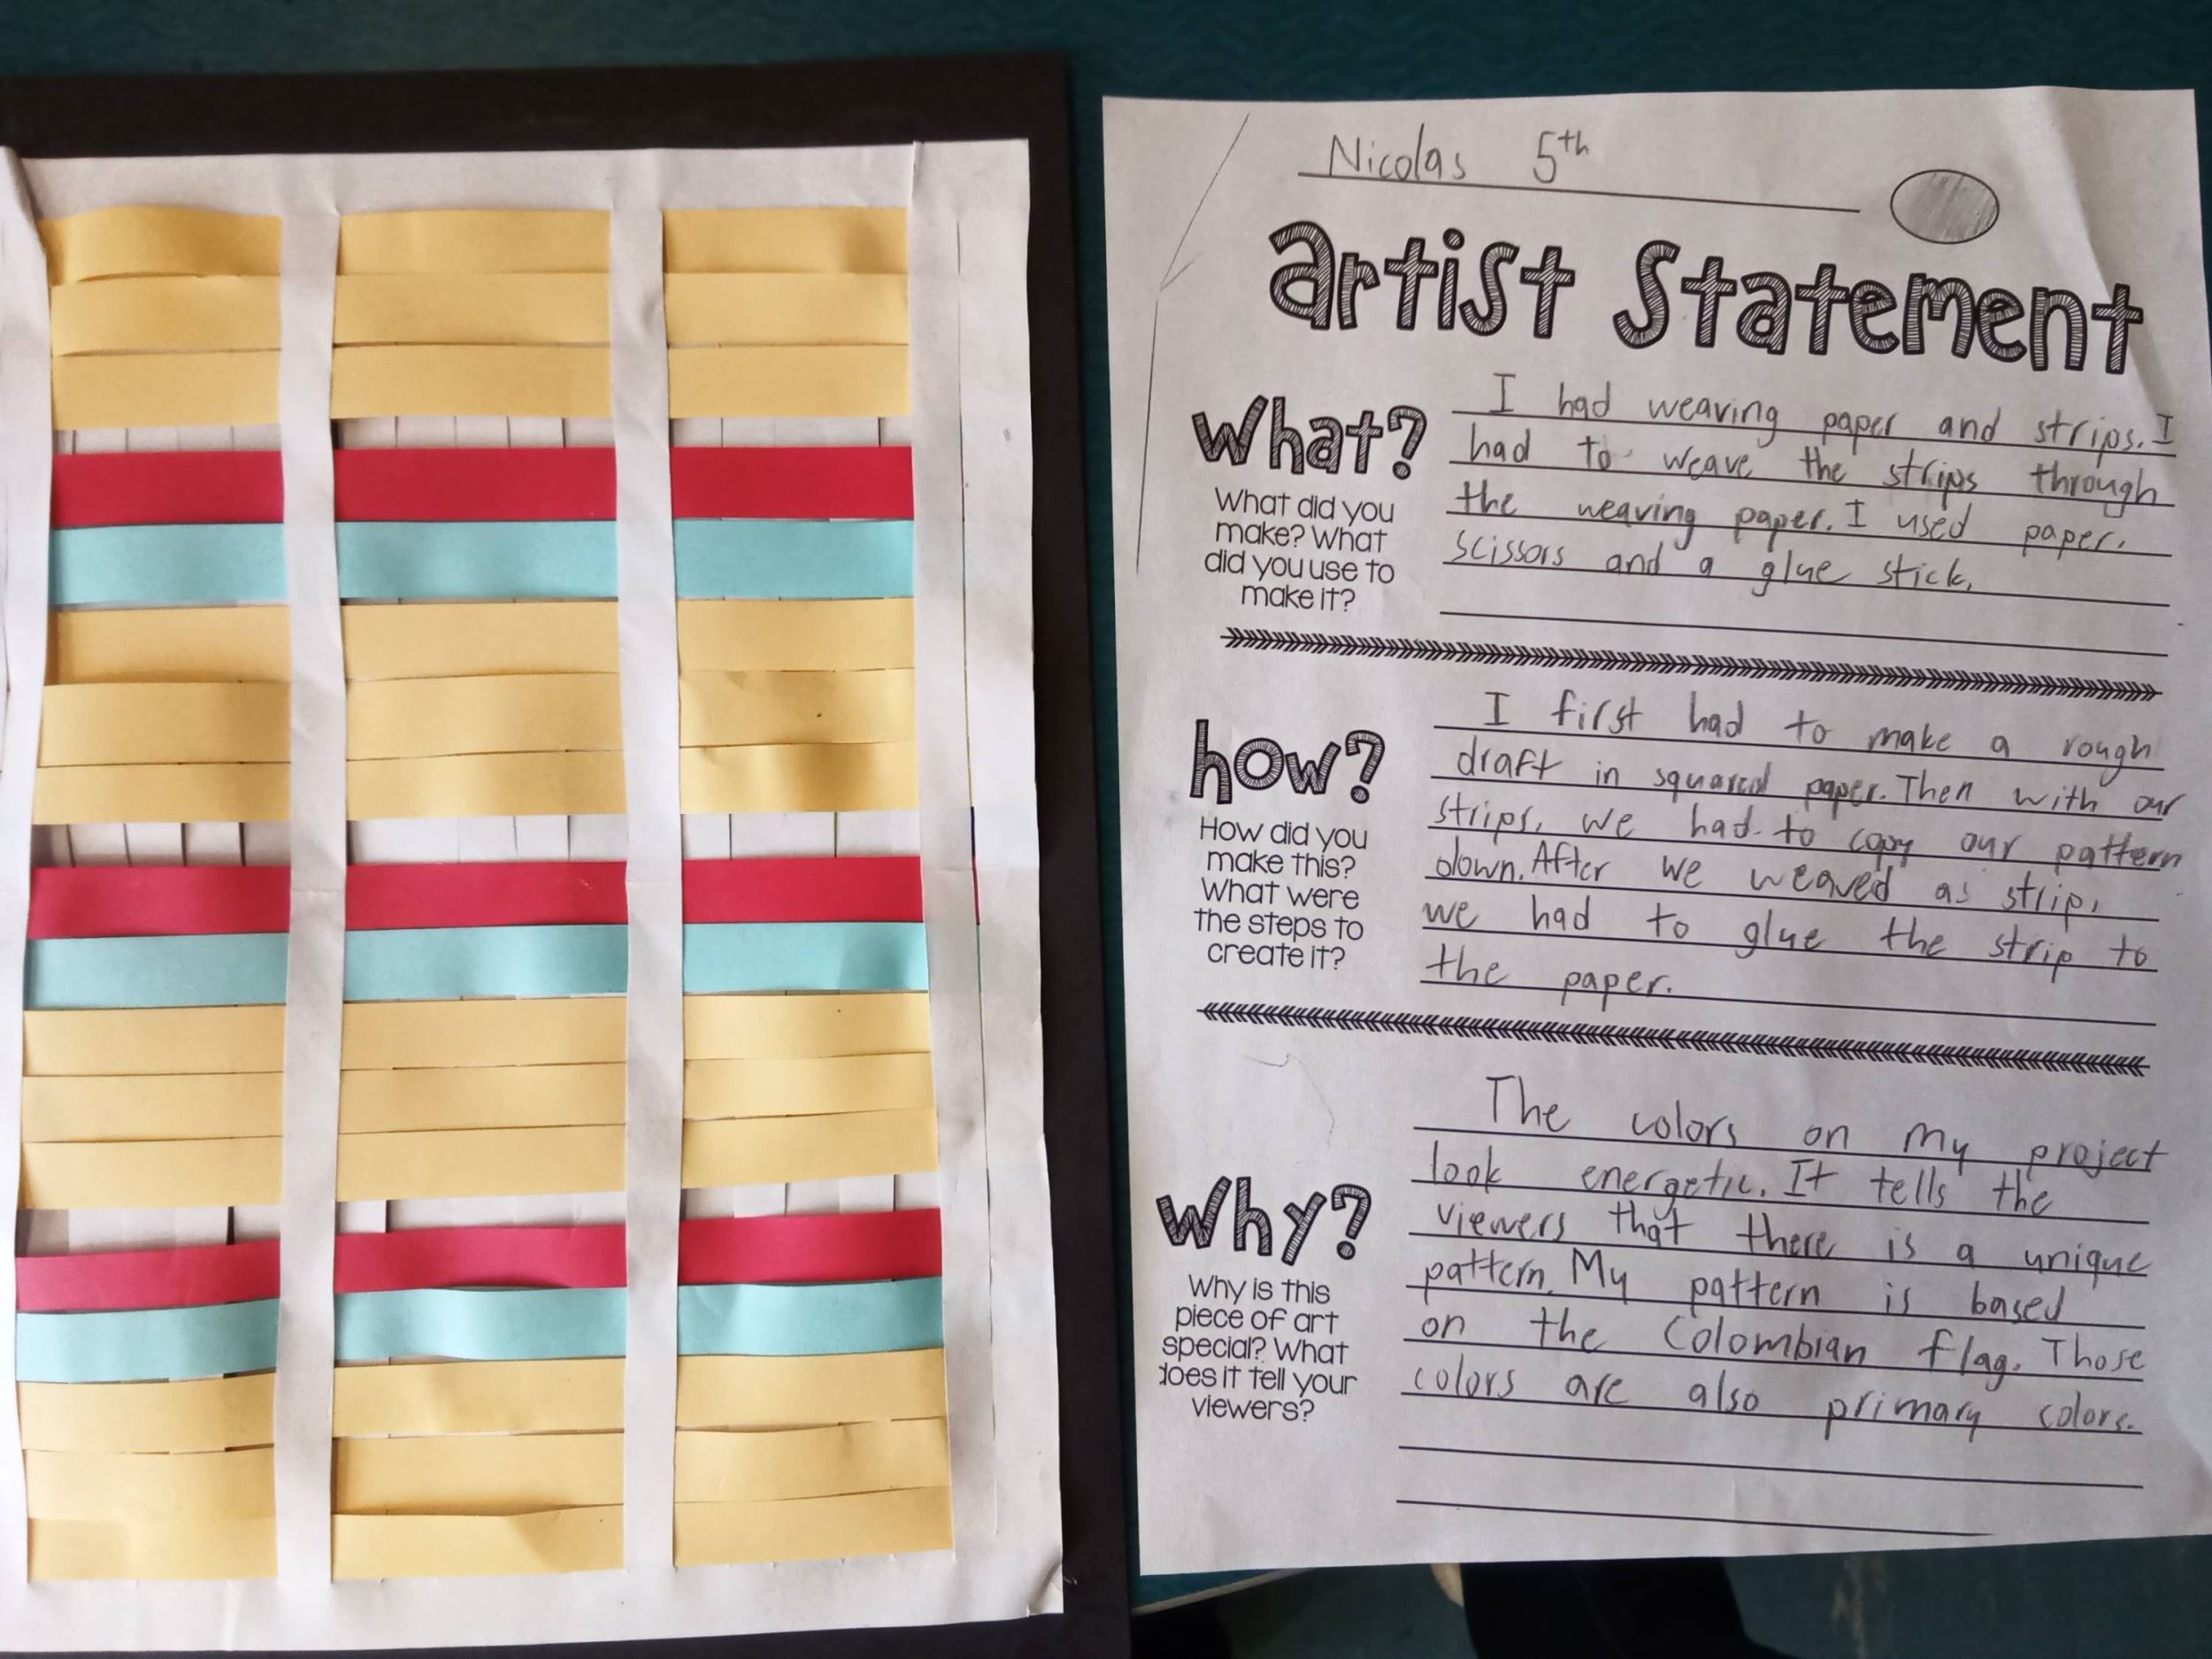 Nicolas 5th
artist Statement
What?
What did you
make? What
did you use to
make it?
I had weaving paper and strips. I
had to weave the strips through
the weaving paper. I used paper,
scissors and a glue stick.
how?
How did you
make this?
What were
the steps to
create it?
I first had to make a rough
draft in squared paper. Then with our
strips, we had to copy our pattern
down. After we weaved as strip,
we had to glue the strip to
the paper.
Why?
Why is this
piece of art
special? What
does it tell your
viewers?
The colors on my project
look energetic. It tells the
viewers that there is a unique
pattern. My pattern is based
on the Colombian flag. Those
colors are also primary colors.